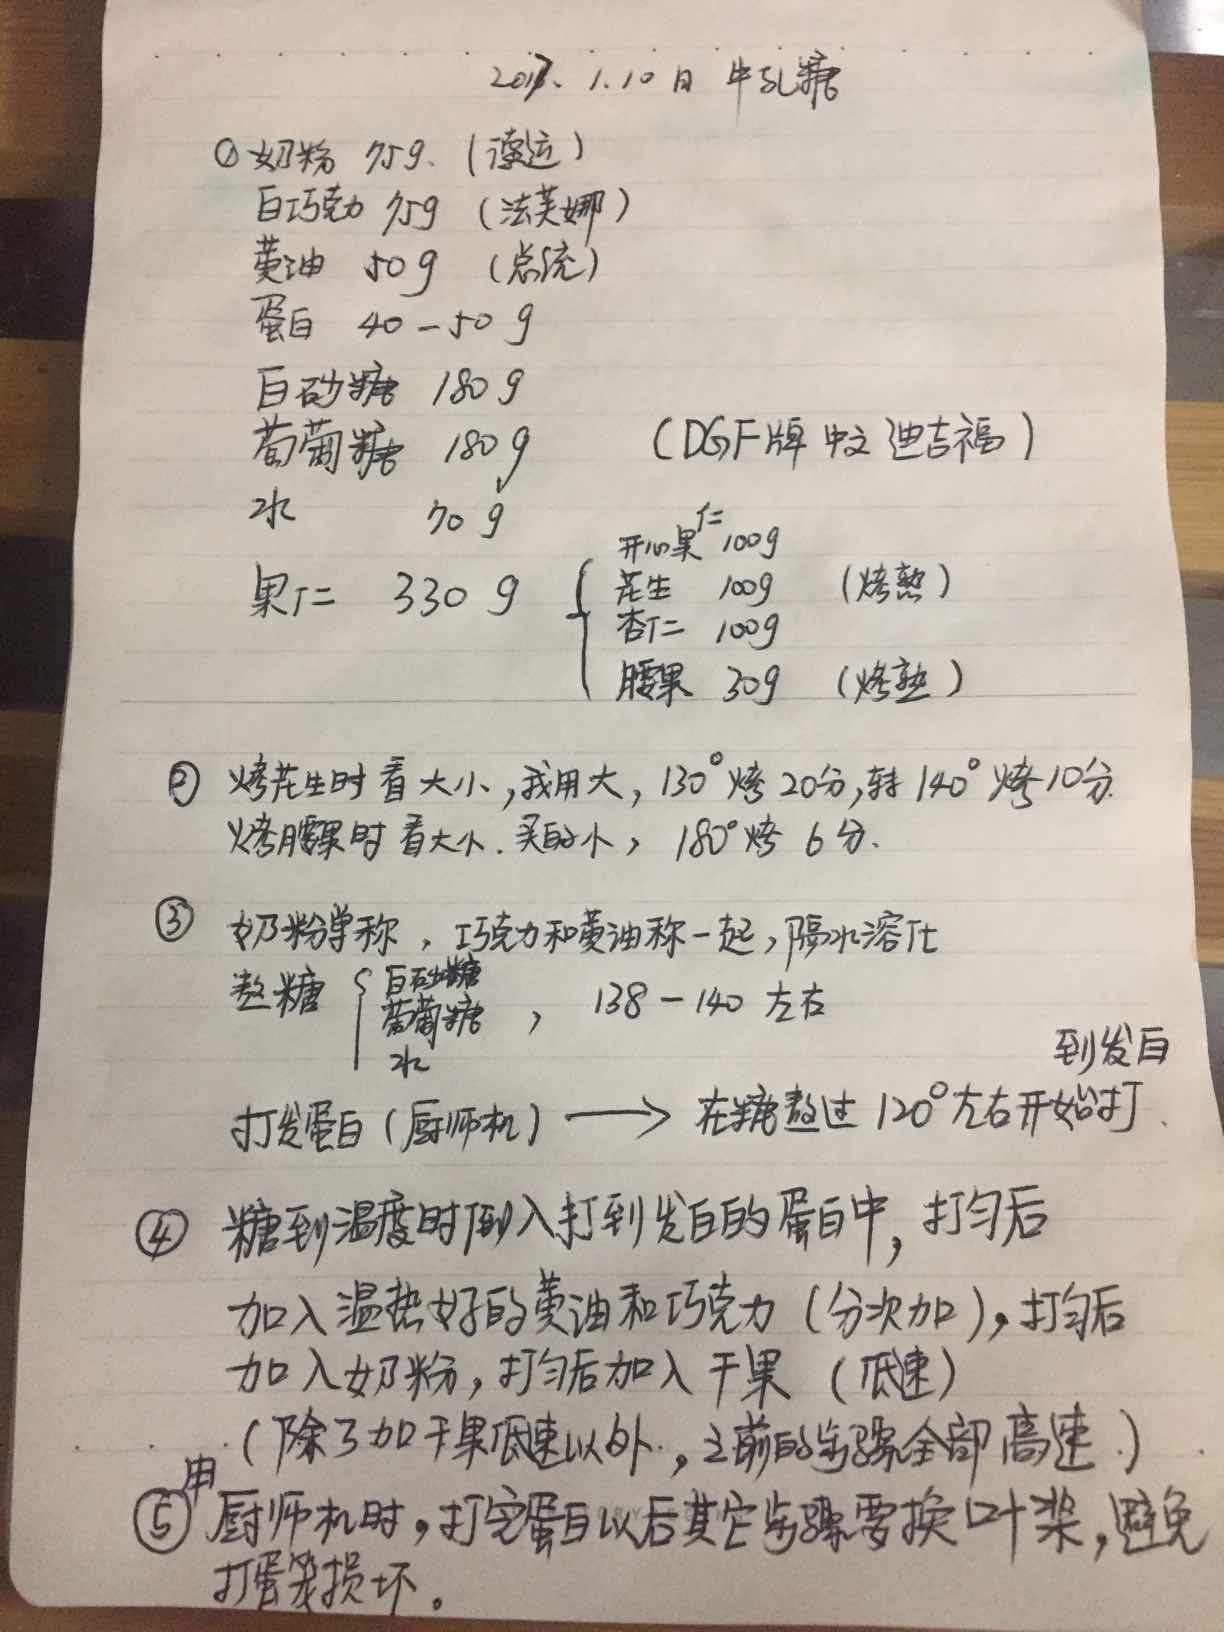 2017、1.10日 牛乳糖
① 奶粉 75g.（德运）
白巧克力 75g （法芙娜）
黄油 50g （总统）
蛋白 40-50g
白砂糖 180g
葡萄糖 180g （DGF牌 中文 迪吉福）
水 70g
果仁 330g
开心果仁 100g
花生 100g （烤熟）
杏仁 100g
腰果 30g （烤熟）
② 烤花生时看大小,我用大, 130°烤20分,转140°烤10分.
烤腰果时看大小.买的小, 180°烤 6分.
③ 奶粉单称,巧克力和黄油称一起,隔水溶化
熬糖
白砂糖
葡萄糖
水
, 138-140左右
到发白
打发蛋白（厨师机） → 在糖熬过120°左右开始打.
④ 糖到温度时倒入打到发白的蛋白中,打匀后
加入温热好的黄油和巧克力（分次加）,打匀后
加入奶粉,打匀后加入干果（低速）
（除了加干果低速以外,之前的步骤全部高速.）
⑤ 用厨师机时,打完蛋白以后其它步骤要换叶桨,避免
打蛋笼损坏。